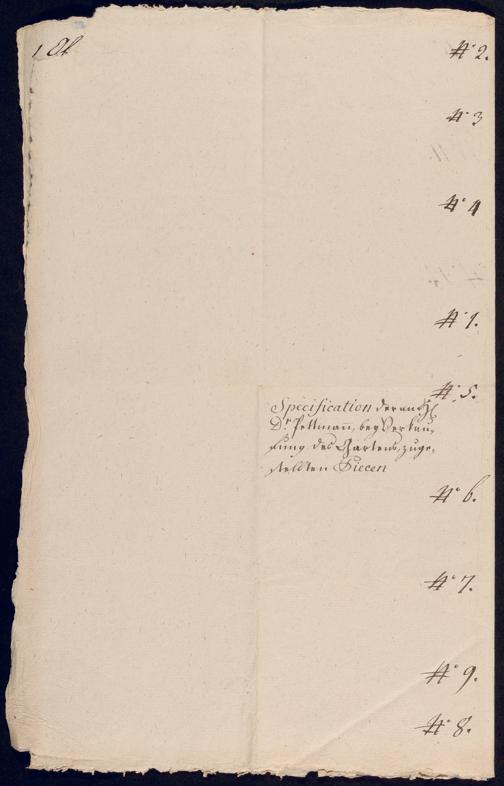 1
N° 2.
N° 3
N° 4
N° 1.
N° 5.
Specification der an H
Dr. Pettmañ, bey Verkau-
fung des Gartens, zuge-
stellten Piecen
N° 6.
N° 7.
N° 9.
N° 8.